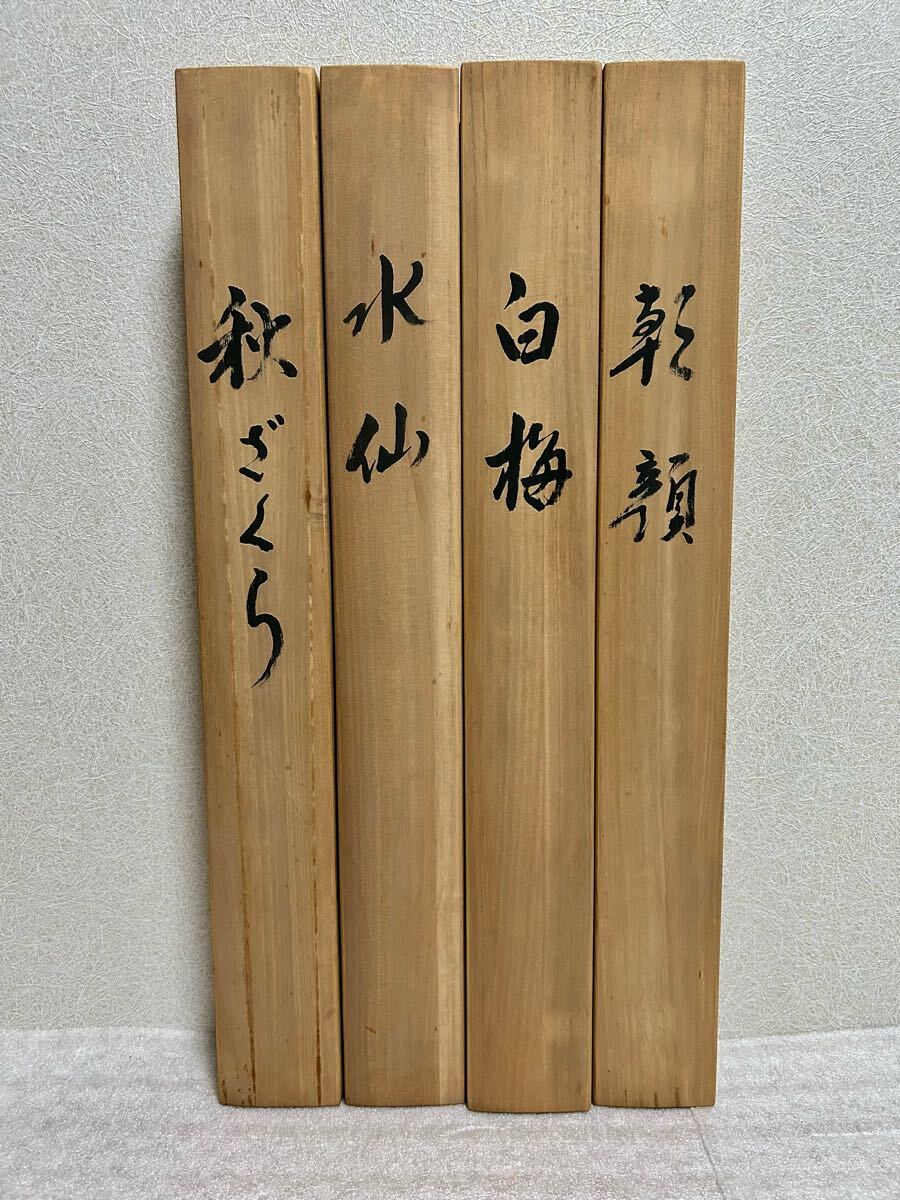 朝顔
白梅
水仙
秋ざくら